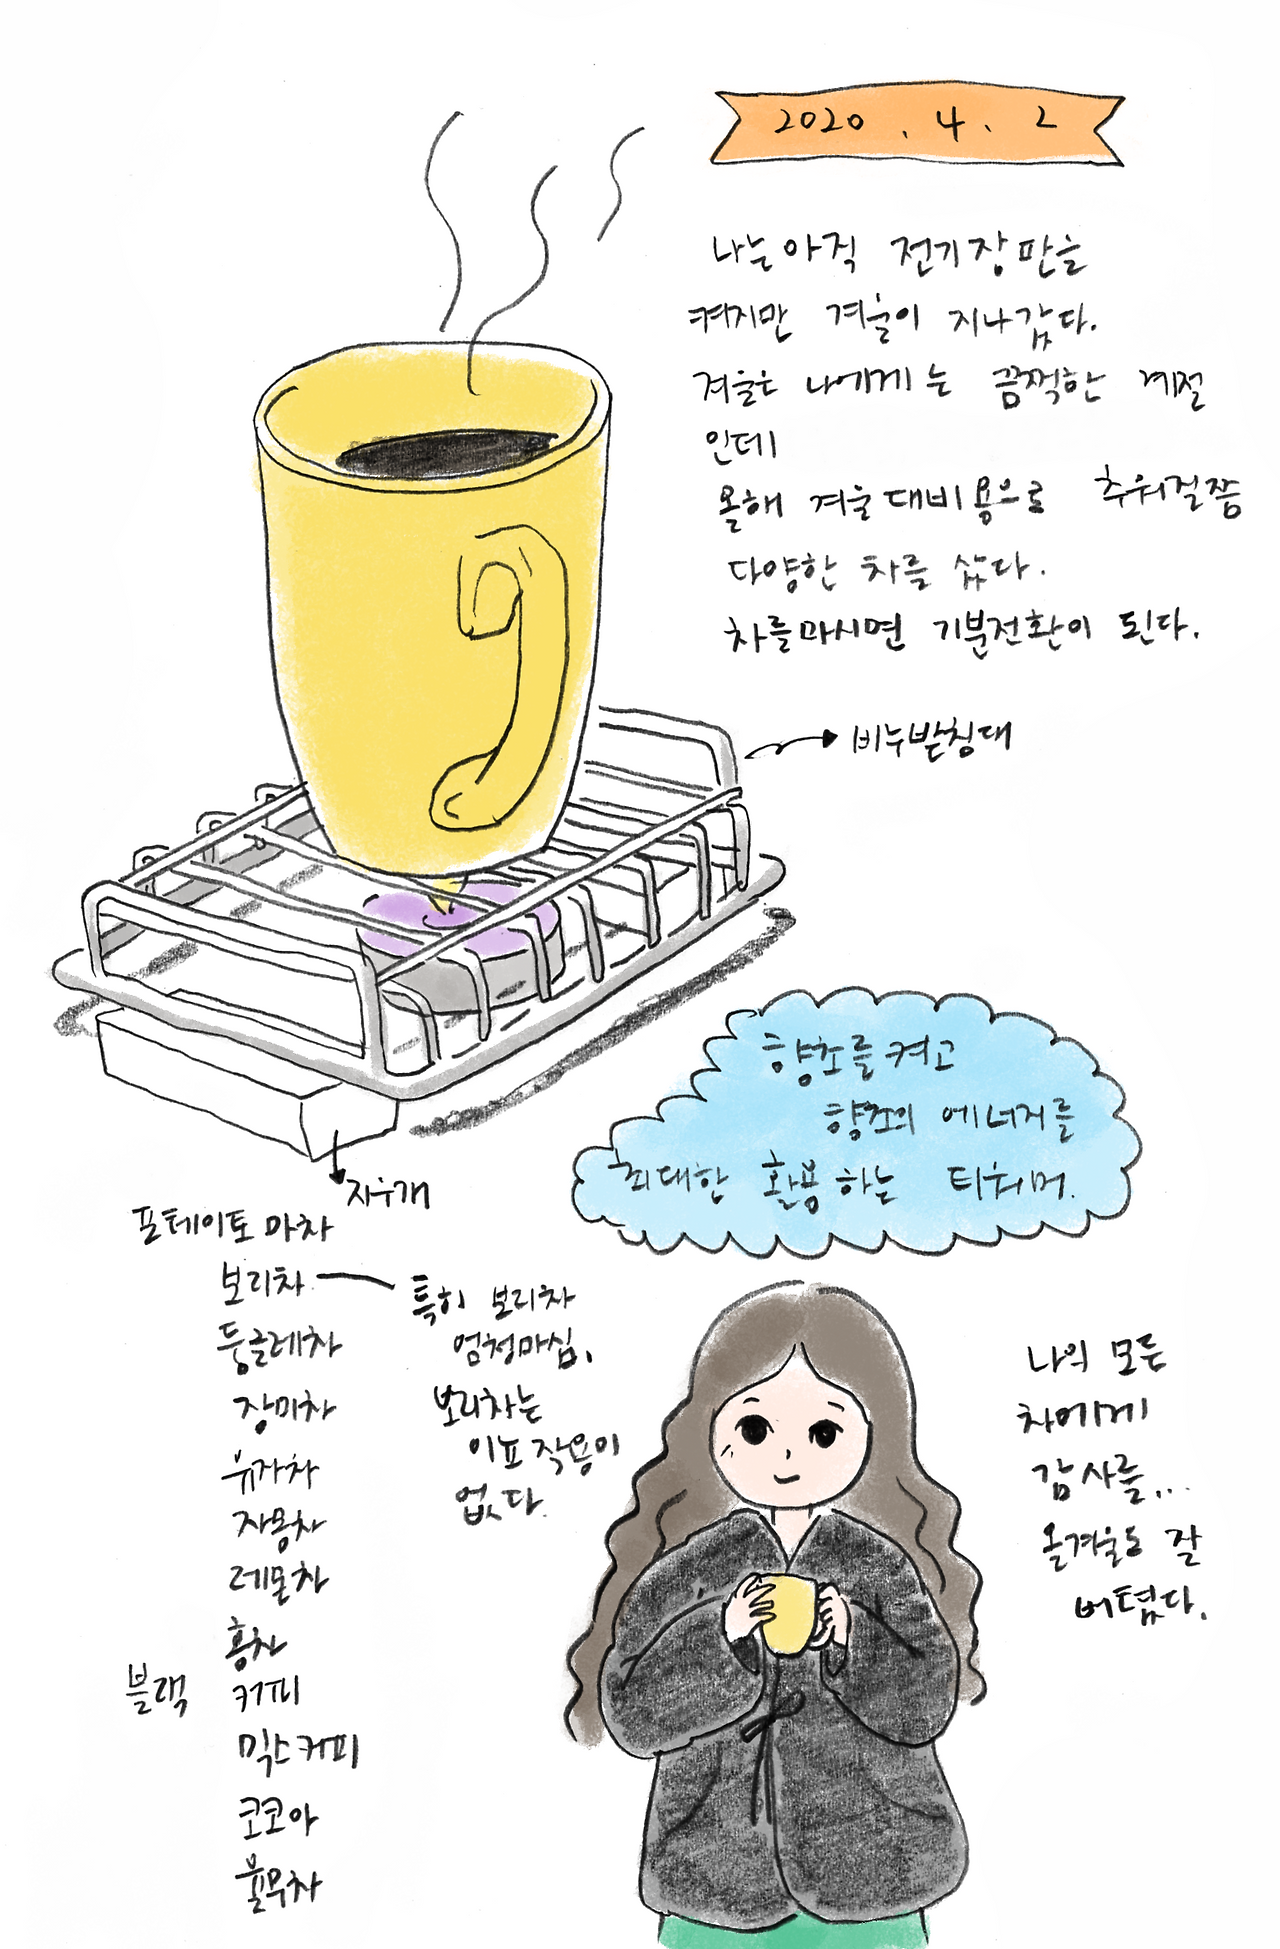 2020. 4. 2
나는 아직 전기장판을
켜지만 겨울이 지나갔다.
겨울은 나에게는 끔찍한 계절
인데
올해 겨울 대비용으로 추워질쯤
다양한 차를 샀다.
차를마시면 기분전환이 된다.
비누받침대
향초를 켜고
향초의 에너지를
최대한 활용하는 티워머.
지우개
포테이토 마차
보리차
둥글레차
장미차
유자차
자몽차
레몬차
홍차
블랙 커피
믹스커피
코코아
율무차
특히 보리차
엄청마심.
보리차는
이뇨 작용이
없다.
나의 모든
차에게
감사를...
올겨울도 잘
버텼다.